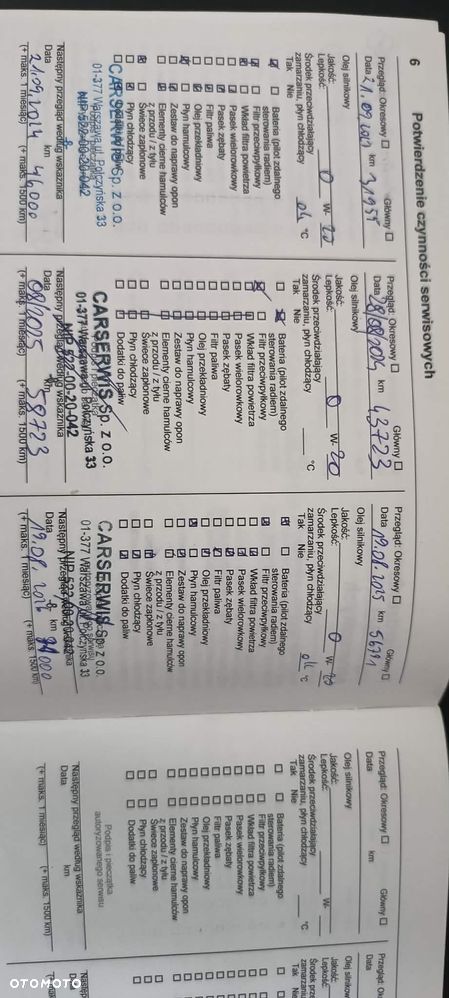 6
Potwierdzenie czynności serwisowych
Przegląd: Okresowy Główny
Data 21.09.2013 km 31955
Olej silnikowy
Jakość:
Lepkość: 0 W- 20
Środek przeciwdziałający
zamarzaniu, płyn chłodzący ok °C
Tak Nie
Bateria (pilot zdalnego
sterowania radiem)
Filtr przeciwpyłkowy
Wkład filtra powietrza
Pasek wielorowkowy
Pasek zębaty
Filtr paliwa
Olej przekładniowy
Płyn hamulcowy
Zestaw do naprawy opon
Elementy cierne hamulców
z przodu / z tyłu
Świece zapłonowe
Płyn chłodzący
CARSERWIS Sp. z o.o.
01-377 Warszawa ul. Połczyńska 33
NIP 522-00-20-042
Następny przegląd według wskaźnika
Data km
21.09.2014 46000
(+ maks. 1 miesiąc) (+ maks. 1500 km)
Przegląd: Okresowy Główny
Data 28/08/2014 km 43723
Olej silnikowy
Jakość:
Lepkość: 0 W- 20
Środek przeciwdziałający
zamarzaniu, płyn chłodzący °C
Tak Nie
Bateria (pilot zdalnego
sterowania radiem)
Filtr przeciwpyłkowy
Wkład filtra powietrza
Pasek wielorowkowy
Pasek zębaty
Filtr paliwa
Olej przekładniowy
Płyn hamulcowy
Zestaw do naprawy opon
Elementy cierne hamulców
z przodu / z tyłu
Świece zapłonowe
Płyn chłodzący
Dodatki do paliw
CARSERWIS Sp. z o.o.
01-377 Warszawa ul. Połczyńska 33
NIP 522-00-20-042
Następny przegląd według wskaźnika
Data km
08/2015 58723
(+ maks. 1 miesiąc) (+ maks. 1500 km)
Przegląd: Okresowy Główny
Data 19.08.2015 km 56791
Olej silnikowy
Jakość:
Lepkość: 0 W- 20
Środek przeciwdziałający
zamarzaniu, płyn chłodzący ok °C
Tak Nie
Bateria (pilot zdalnego
sterowania radiem)
Filtr przeciwpyłkowy
Wkład filtra powietrza
Pasek wielorowkowy
Pasek zębaty
Filtr paliwa
Olej przekładniowy
Płyn hamulcowy
Zestaw do naprawy opon
Elementy cierne hamulców
z przodu / z tyłu
Świece zapłonowe
Płyn chłodzący
Dodatki do paliw
CARSERWIS Sp. z o.o.
01-377 Warszawa ul. Połczyńska 33
NIP 522-00-20-042
Następny przegląd według wskaźnika
Data km
(+ maks. 1 miesiąc) (+ maks. 1500 km)
Przegląd: Okresowy Główny
Data km
Olej silnikowy
Jakość:
Lepkość: W-
Środek przeciwdziałający
zamarzaniu, płyn chłodzący °C
Tak Nie
Bateria (pilot zdalnego
sterowania radiem)
Filtr przeciwpyłkowy
Wkład filtra powietrza
Pasek wielorowkowy
Pasek zębaty
Filtr paliwa
Olej przekładniowy
Płyn hamulcowy
Zestaw do naprawy opon
Elementy cierne hamulców
z przodu / z tyłu
Świece zapłonowe
Płyn chłodzący
Dodatki do paliw
Podpis i pieczątka
autoryzowanego serwisu
Następny przegląd według wskaźnika
Data km
(+ maks. 1 miesiąc) (+ maks. 1500 km)
Przegląd: Ok
Data
Olej silnikowy
Jakość:
Lepkość:
OTOMOTO